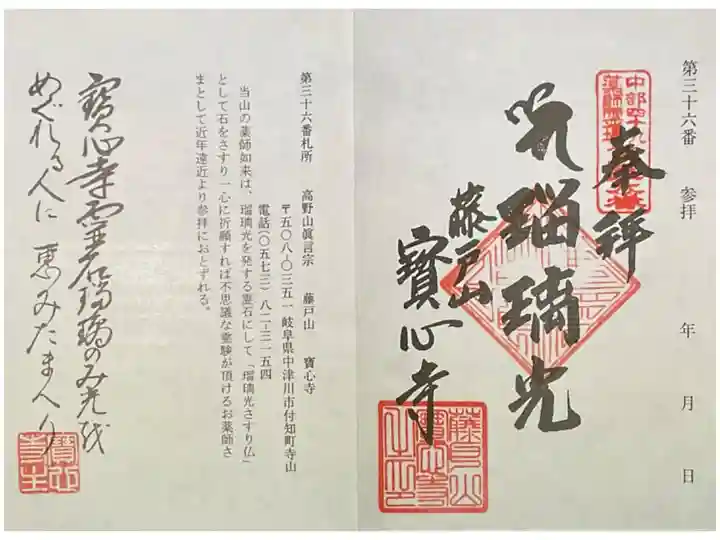 第三十六番 参拝 年 月 日
奉拝
瑠璃光
藤戸山
寳心寺
第三十六番札所 高野山眞言宗 藤戸山 寶心寺
〒五〇八-〇三五一 岐阜県中津川市付知町寺山
電話(〇五七三)八二-三一五四
当山の薬師如来は、瑠璃光を発する霊石にして「瑠璃光さすり仏」
として石をさすり一心に祈願すれば不思議な霊験が頂けるお薬師さ
まとして近年遠近より参拝におとずれる。
寳心寺霊石瑠璃のみ光を
めぐれる人に恵みたまへり